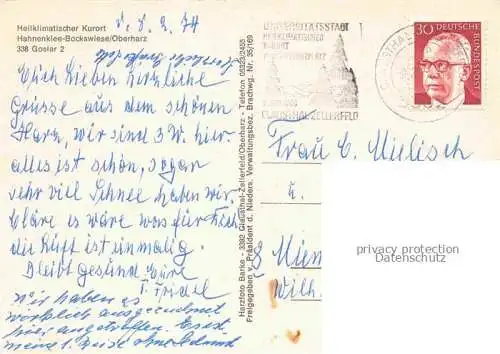 Heilklimatischer Kurort
Hahnenklee-Bockswiese/Oberharz
338 Goslar 2
d. 8. 2. 74
Euch lieben herzliche
Grüsse aus dem schönen
Harz, wir sind 3 W. hier.
alles ist schön, sogar
sehr viel Schnee haben wir.
Cläre es wäre was für Euch
die Luft ist einmalig.
Bleibt gesund Eure
Wir haben es
wirklich ausgezeichnet
hier angetroffen. Es ist
meine 1. Reise ohne
Harzfoto Barke - 3392 Clausthal-Zellerfeld/Oberharz - Telefon 05323/2405
Freigegeben Präsident d. Nieders. Verwaltungsbez. Brschwg. Nr. 35/169
UNIVERSITÄTSSTADT
HEILKLIMATISCHER
KURORT
WINTERSPORTPLATZ
CLAUSTHAL-ZELLERFELD
30
DEUTSCHE
BUNDESPOST
Frau C. Mielisch
8
Wilh.
privacy protection
Datenschutz